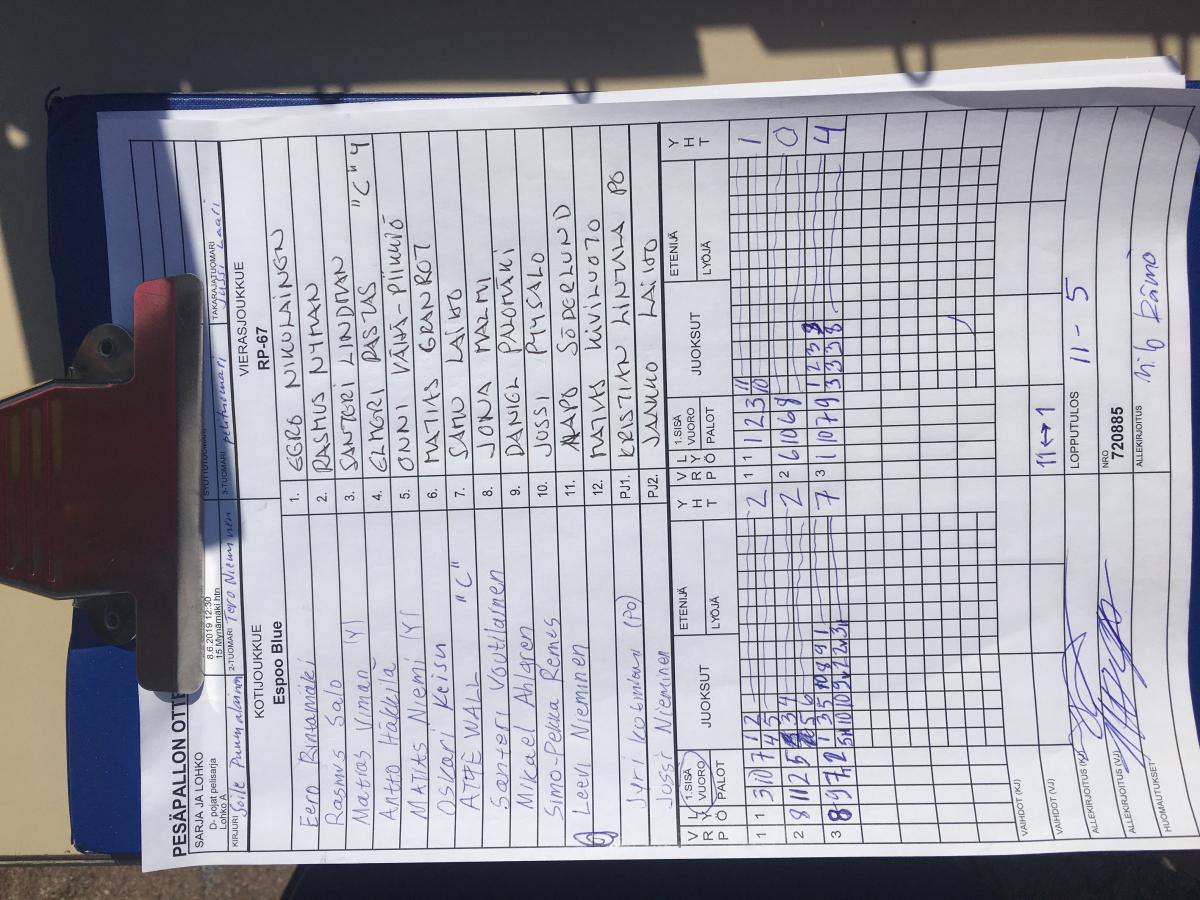 PESÄPALLON OTTE
SARJA JA LOHKO
D- pojat pelisarja
Lohko A
8.6.2019 12:30
15 Mynämäki htn
KIRJURI
2-TUOMARI Tero Nieminen
3-TUOMARI pelituomari
TAKARAJATUOMARI Jussi Laari
KOTIJOUKKUE
Espoo Blue
VIERASJOUKKUE
RP-67
Eero Rintamäki
1. EERO NIKULAINEN
Rasmus Salo
2. RASMUS NYMAN
Matias Viman
3. SANTERI LINDMAN
Antto Häkkilä
4. ELMERI RASTAS "C" 4
MATIAS Niemi
5. ONNI VÄHÄ-PIIKKIÖ
Oskari Keisu
6. MATIAS GRANROT
ATTE WALL "C"
7. SAMU LAIHO
Santeri Voutilainen
8. JONA MALMI
Mikael Ahlgren
9. DANIEL PALOMÄKI
Simo-Pekka Remes
10. JUSSI PYYSALO
Leevi Nieminen
11. AAPO SÖDERLUND
12. MATIAS KIVILUOTO
Jyri (PO)
PJ1. KRISTIAN LINTULA PO
Jussi Nieminen
PJ2. JAAKKO LAIHO
V R P L Y Ö 1.SISÄ VUORO PALOT JUOKSUT ETENIJÄ LYÖJÄ Y H T
V R P L Y Ö 1.SISÄ VUORO PALOT JUOKSUT ETENIJÄ LYÖJÄ Y H T
1 1 3 10 7 1 2 2
4 5
1 1 1 2 3 11 1
10
2 8 11 2 5 3 4 2
5 6
2 6 10 6 8 0
3 8 9 7 2 1 3 5 10 8 9 1 7
3 1 10 7 9 1 2 3 8 4
3 3 3 8
VAIHDOT (KJ)
11↔1
VAIHDOT (VJ)
ALLEKIRJOITUS (KJ)
LOPPUTULOS 11 - 5
ALLEKIRJOITUS (VJ)
NRO
720885
HUOMAUTUKSET
ALLEKIRJOITUS